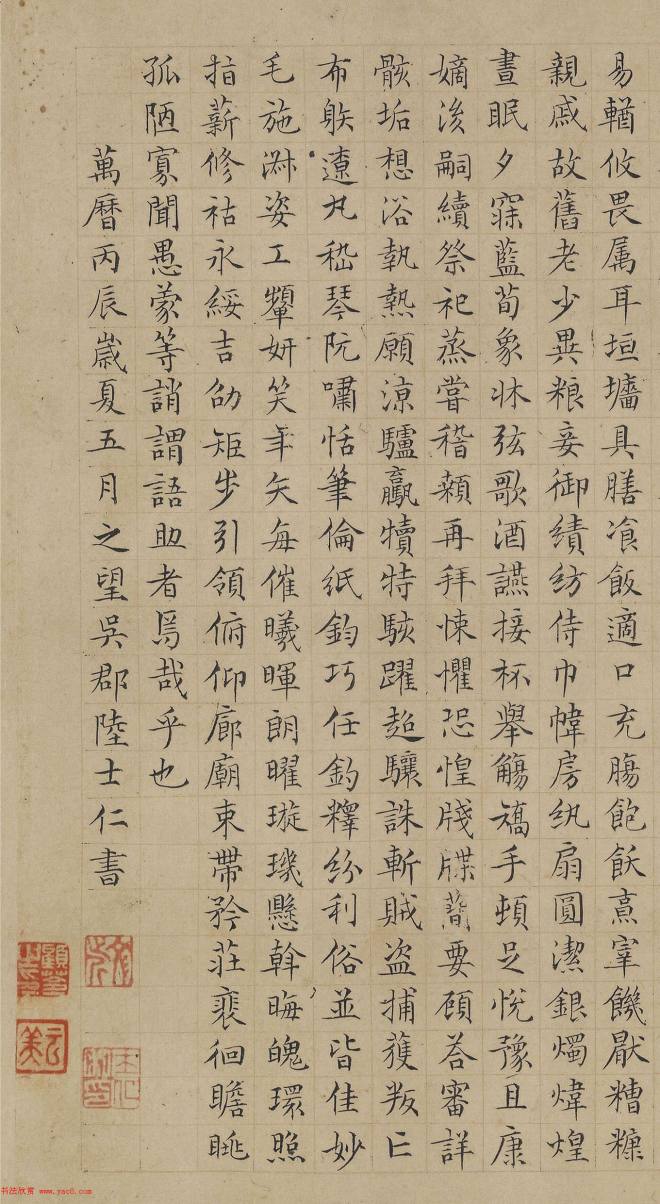 易輶攸畏属耳垣墻具膳飡飯適口充膓飽飫烹宰饑厭糟糠
親戚故舊老少異粮妾御績紡侍巾幃房紈扇圓潔銀燭煒煌
晝眠夕寐藍荀象牀弦歌酒讌接杯舉觴矯手頓足悅豫且康
嫡後嗣續祭祀蒸嘗稽顙再拜悚懼恐惶牋牒簡要顧答審詳
骸垢想浴執熱願凉驢驘犢特駭躍超驤誅斬賊盜捕獲叛亡
布䠶遼丸嵇琴阮嘯恬筆倫紙鈞巧任釣釋紛利俗並皆佳妙
毛施淑姿工顰妍笑年矢每催曦暉朗曜璇璣懸斡晦魄環照
指薪修祜永綏吉劭矩步引領俯仰廊廟束帶矜莊裵徊瞻眺
孤陋寡聞愚蒙等誚謂語助者焉哉乎也
萬曆丙辰歲夏五月之望吳郡陸士仁書
书法欣赏 www.yac8.com